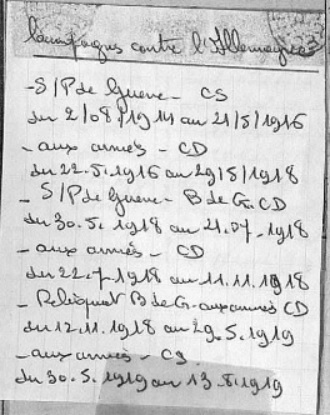 Campagnes contre l'Allemagne
- S/P de Guerre - CS
du 2/08/1914 au 21/5/1916
- aux armées - CD
du 22.5.1916 au 29/5/1918
- S/P de Guerre - B de G. CD
du 30.5.1918 au 21.07.1918
- aux armées - CD
du 22.7.1918 au 11.11.1918
- Reliquat B de G. aux armées CD
du 12.11.1918 au 29.5.1919
- aux armées - CS
du 30.5.1919 au 13.8.1919